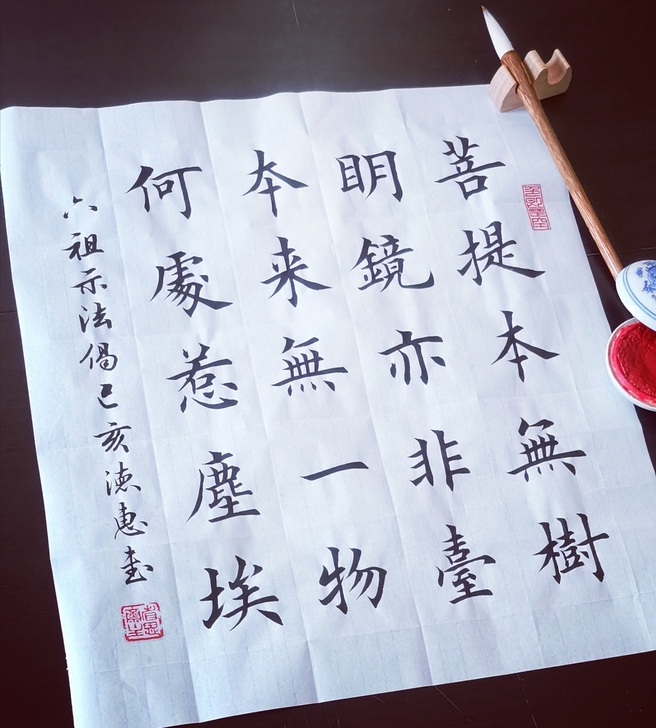 菩提本無樹
明鏡亦非臺
本来無一物
何處惹塵埃
六祖示法偈己亥德惠書